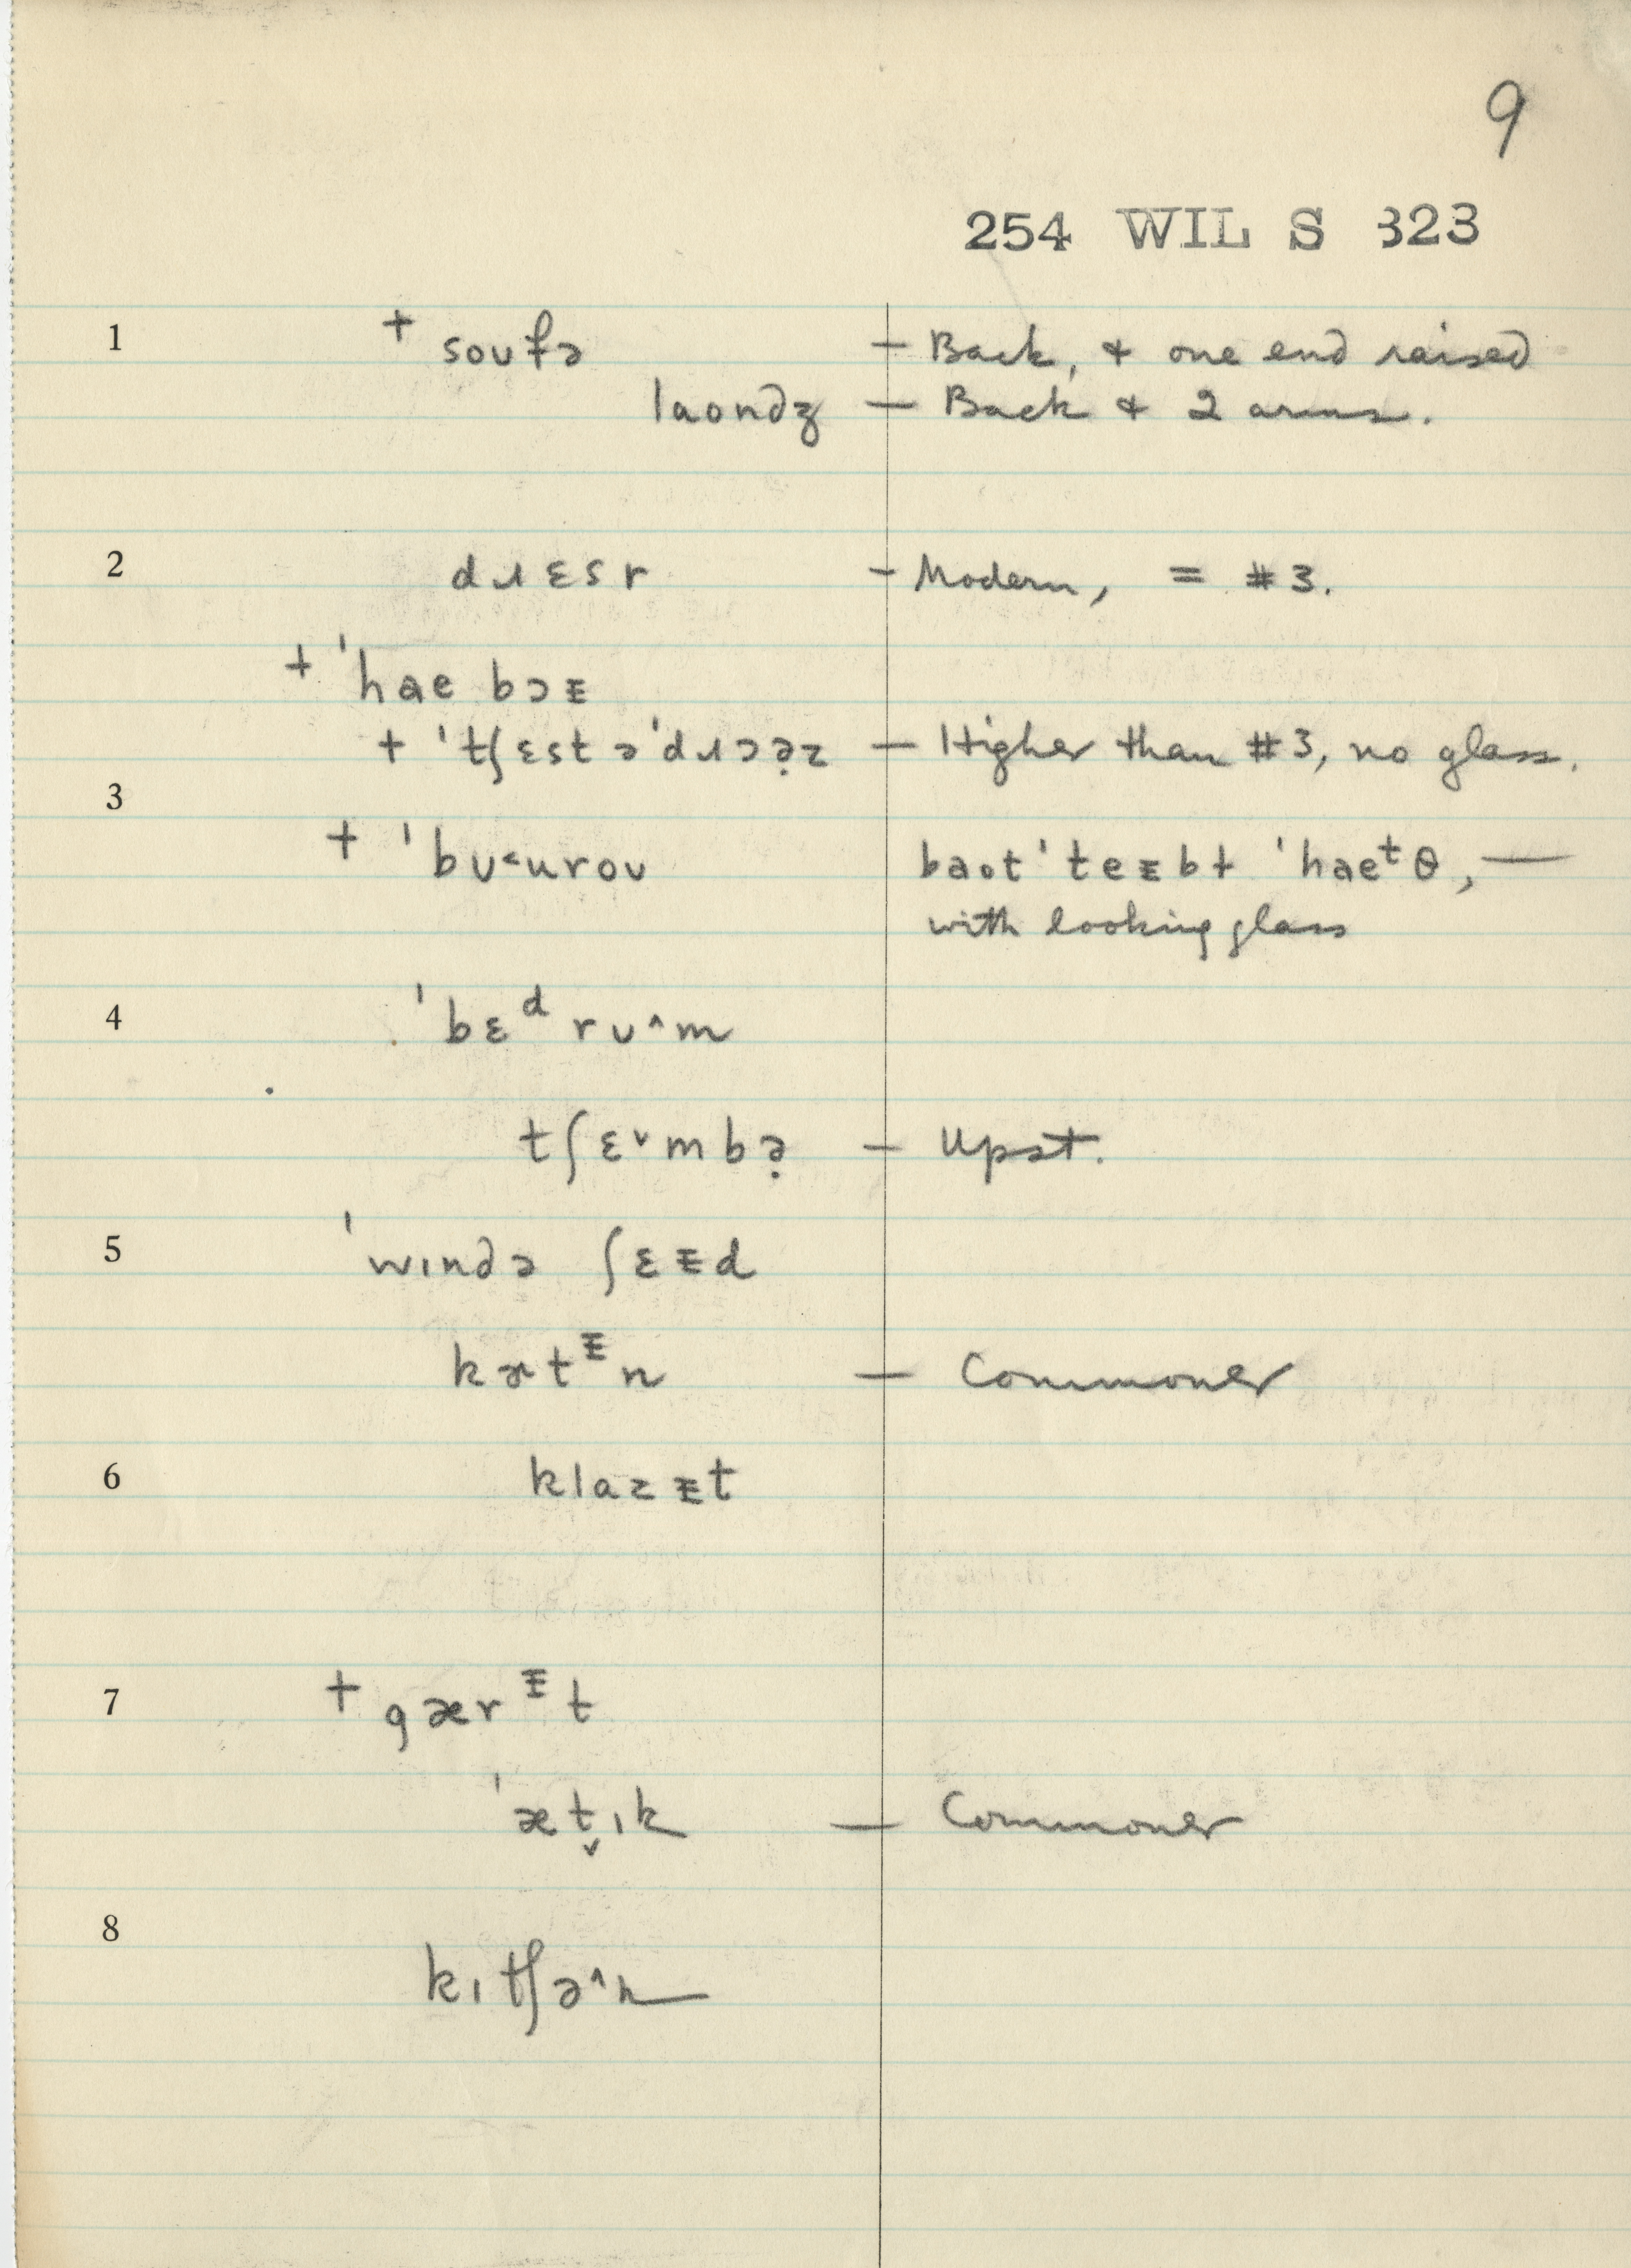 9
254 WIL S 323
1 + soufə – Back, & one end raised
laondʒ – Back & 2 arms.
2 dɹɛsr – Modern, = #3.
+ ˈhae bɔᵻ
+ ˈtʃɛst əˈdɹɔə̣z – Higher than #3, no glass.
3
+ ˈbu˂urou baot ˈteᵻbɫ ˈhaeᵗθ, —
with looking glass
4 ˈbɛᵈ ru˄m
tʃɛ˅mbə̣ – Upst.
5 ˈwɪndə ʃɛᵻd
kɜtᵻn – Commoner
6 klazᵻt
7 + gærᵻt
ˈæt̬ɪk – Commoner
8
kɪtʃə˄n